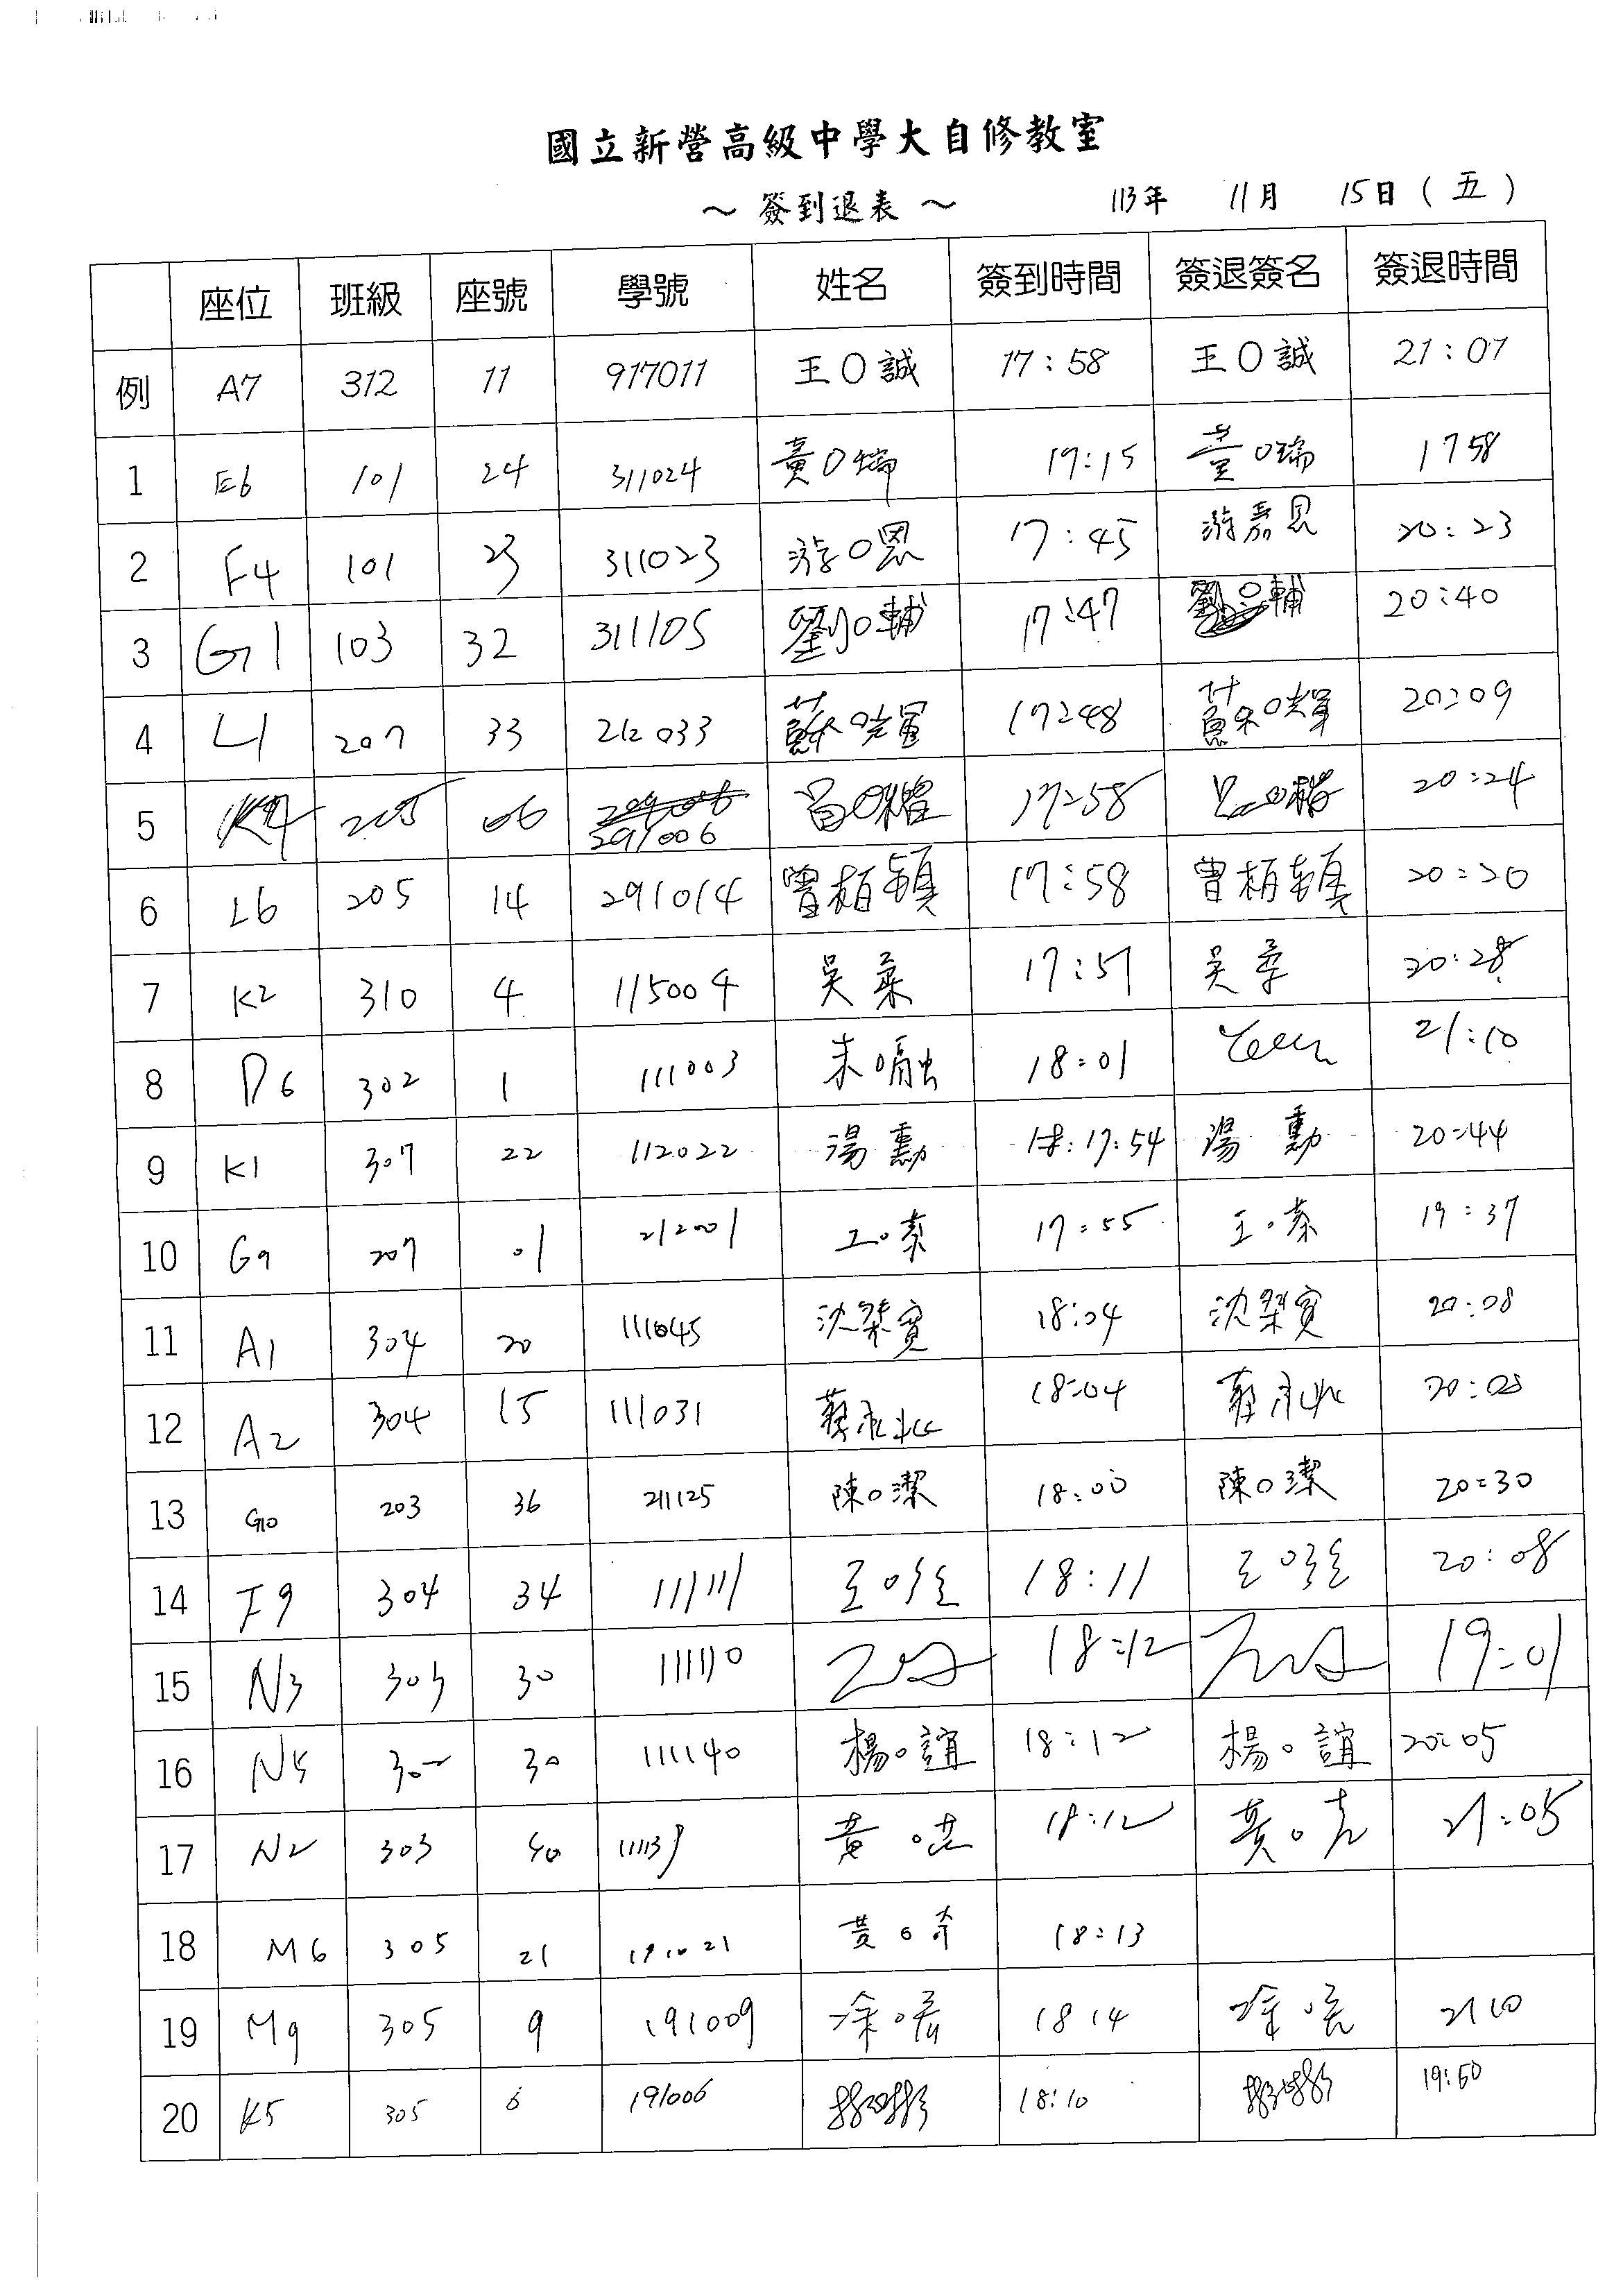 國立新營高級中學大自修教室
～ 簽到退表 ～ 113年 11月 15日 ( 五 )
座位 班級 座號 學號 姓名 簽到時間 簽退簽名 簽退時間
例 A7 312 11 917011 王O誠 17:58 王O誠 21:07
1 E6 101 24 311024 黃O瑞 17:15 黃O瑞 1758
2 F4 101 23 311023 游O恩 17:45 游嘉恩 20:23
3 G1 103 32 311105 劉O輔 17:47 劉O輔 20:40
4 L1 207 33 212033 蘇O輝 17:48 蘇O輝 20:09
5 K4 205 06 291006 17:58 20:24
6 L6 205 14 291014 曾栢顉 17:58 曾栢顉 20:20
7 K2 310 4 115004 吳柔 17:57 吳柔 20:28
8 D6 302 1 111003 朱O融 18:01 21:10
9 K1 307 22 112022 湯勳 17:54 湯勳 20:44
10 G9 207 01 212001 王O蓁 17:55 王O蓁 19:37
11 A1 304 20 111045 沈榮寬 18:04 沈榮寬 20:08
12 A2 304 15 111031 蔡 18:04 蔡 20:08
13 G10 203 36 211125 陳O潔 18:00 陳O潔 20:30
14 I9 304 34 111111 王O 18:11 王O 20:08
15 N3 303 30 111110 18:12 19:01
16 N5 302 30 111140 楊O誼 18:12 楊O誼 20:05
17 N2 303 40 111139 黃O 18:12 黃O 21:05
18 M6 305 21 191021 黃O 18:13
19 M9 305 9 191009 涂O 1814 涂O 2110
20 K5 305 6 191006 18:10 19:50